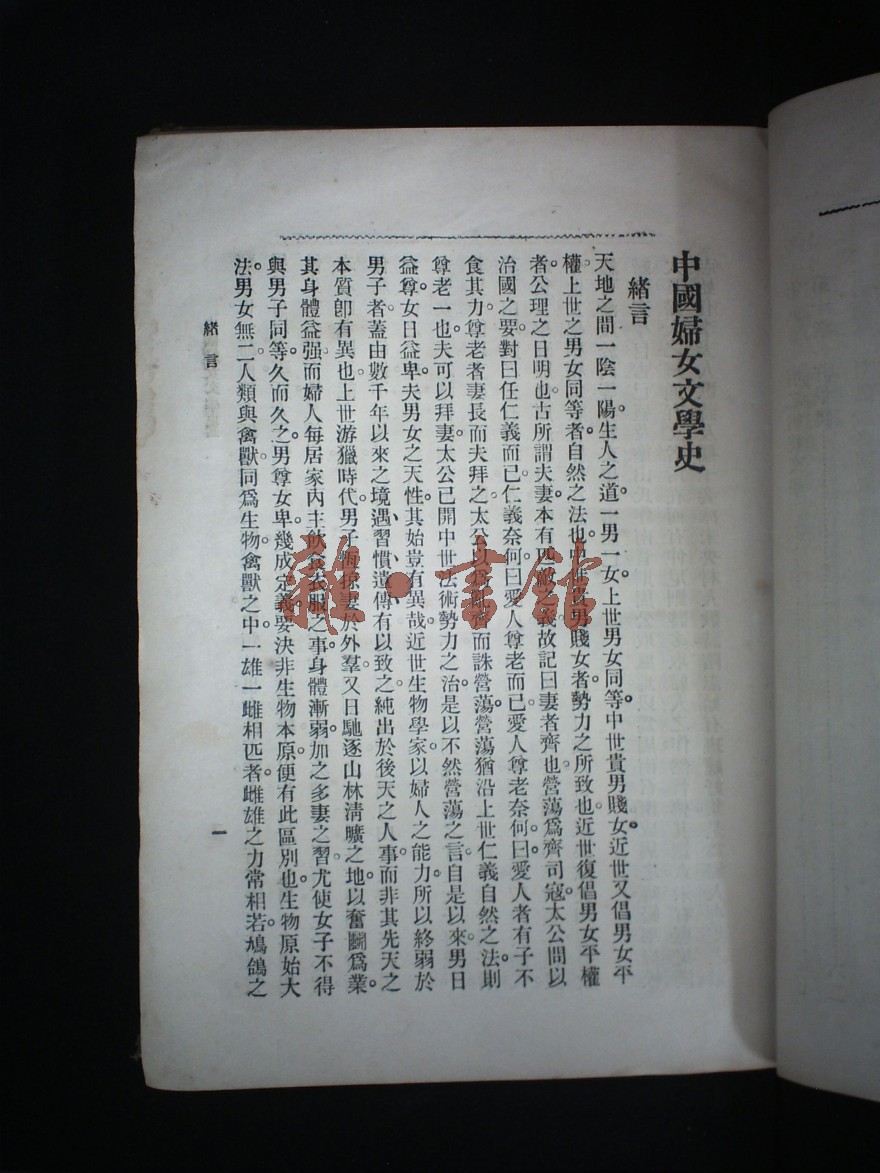 中國婦女文學史
緒言
天地之間一陰一陽。生人之道。一男一女。上世男女同等。中世貴男賤女。近世又倡男女平
權。上世之男女同等者。自然之法也。中世貴男賤女者。勢力之所致也。近世復倡男女平權
者。公理之日明也。古所謂夫妻。本有匹敵之義。故記曰妻者齊也。營蕩爲齊司寇。太公問以
治國之要。對曰任仁義而已。仁義奈何。曰愛人尊老而已。愛人尊老奈何。曰愛人者有子不
食其力。尊老者妻長而夫拜之。太公以爲亂齊而誅營蕩。營蕩猶沿上世仁義自然之法。則
尊老一也。夫可以拜妻。太公已開中世法術勢力之治。是以不然營蕩之言。自是以來。男日
益尊。女日益卑。夫男女之天性。其始豈有異哉。近世生物學家。以婦人之能力。所以終弱於
男子者。蓋由數千年以來之境遇、習慣、遺傳有以致之。純出於後天之人事。而非其先天之
本質卽有異也。上世游獵時代。男子恆掠妻於外羣。又日馳逐山林淸曠之地。以奮鬭爲業。
其身體益强。而婦人每居家內。主飮食衣服之事。身體漸弱。加之多妻之習。尤使女子不得
與男子同等。久而久之。男尊女卑。幾成定義。要決非生物本原。便有此區別也。生物原始大
法。男女無二。人類與禽獸。同爲生物。禽獸之中。一雄一雌相匹者。雌雄之力常相若。鳩鴿之
緒言
一
雜·書館